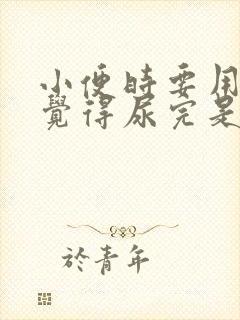 小便時要用
覺得尿完是
於青年